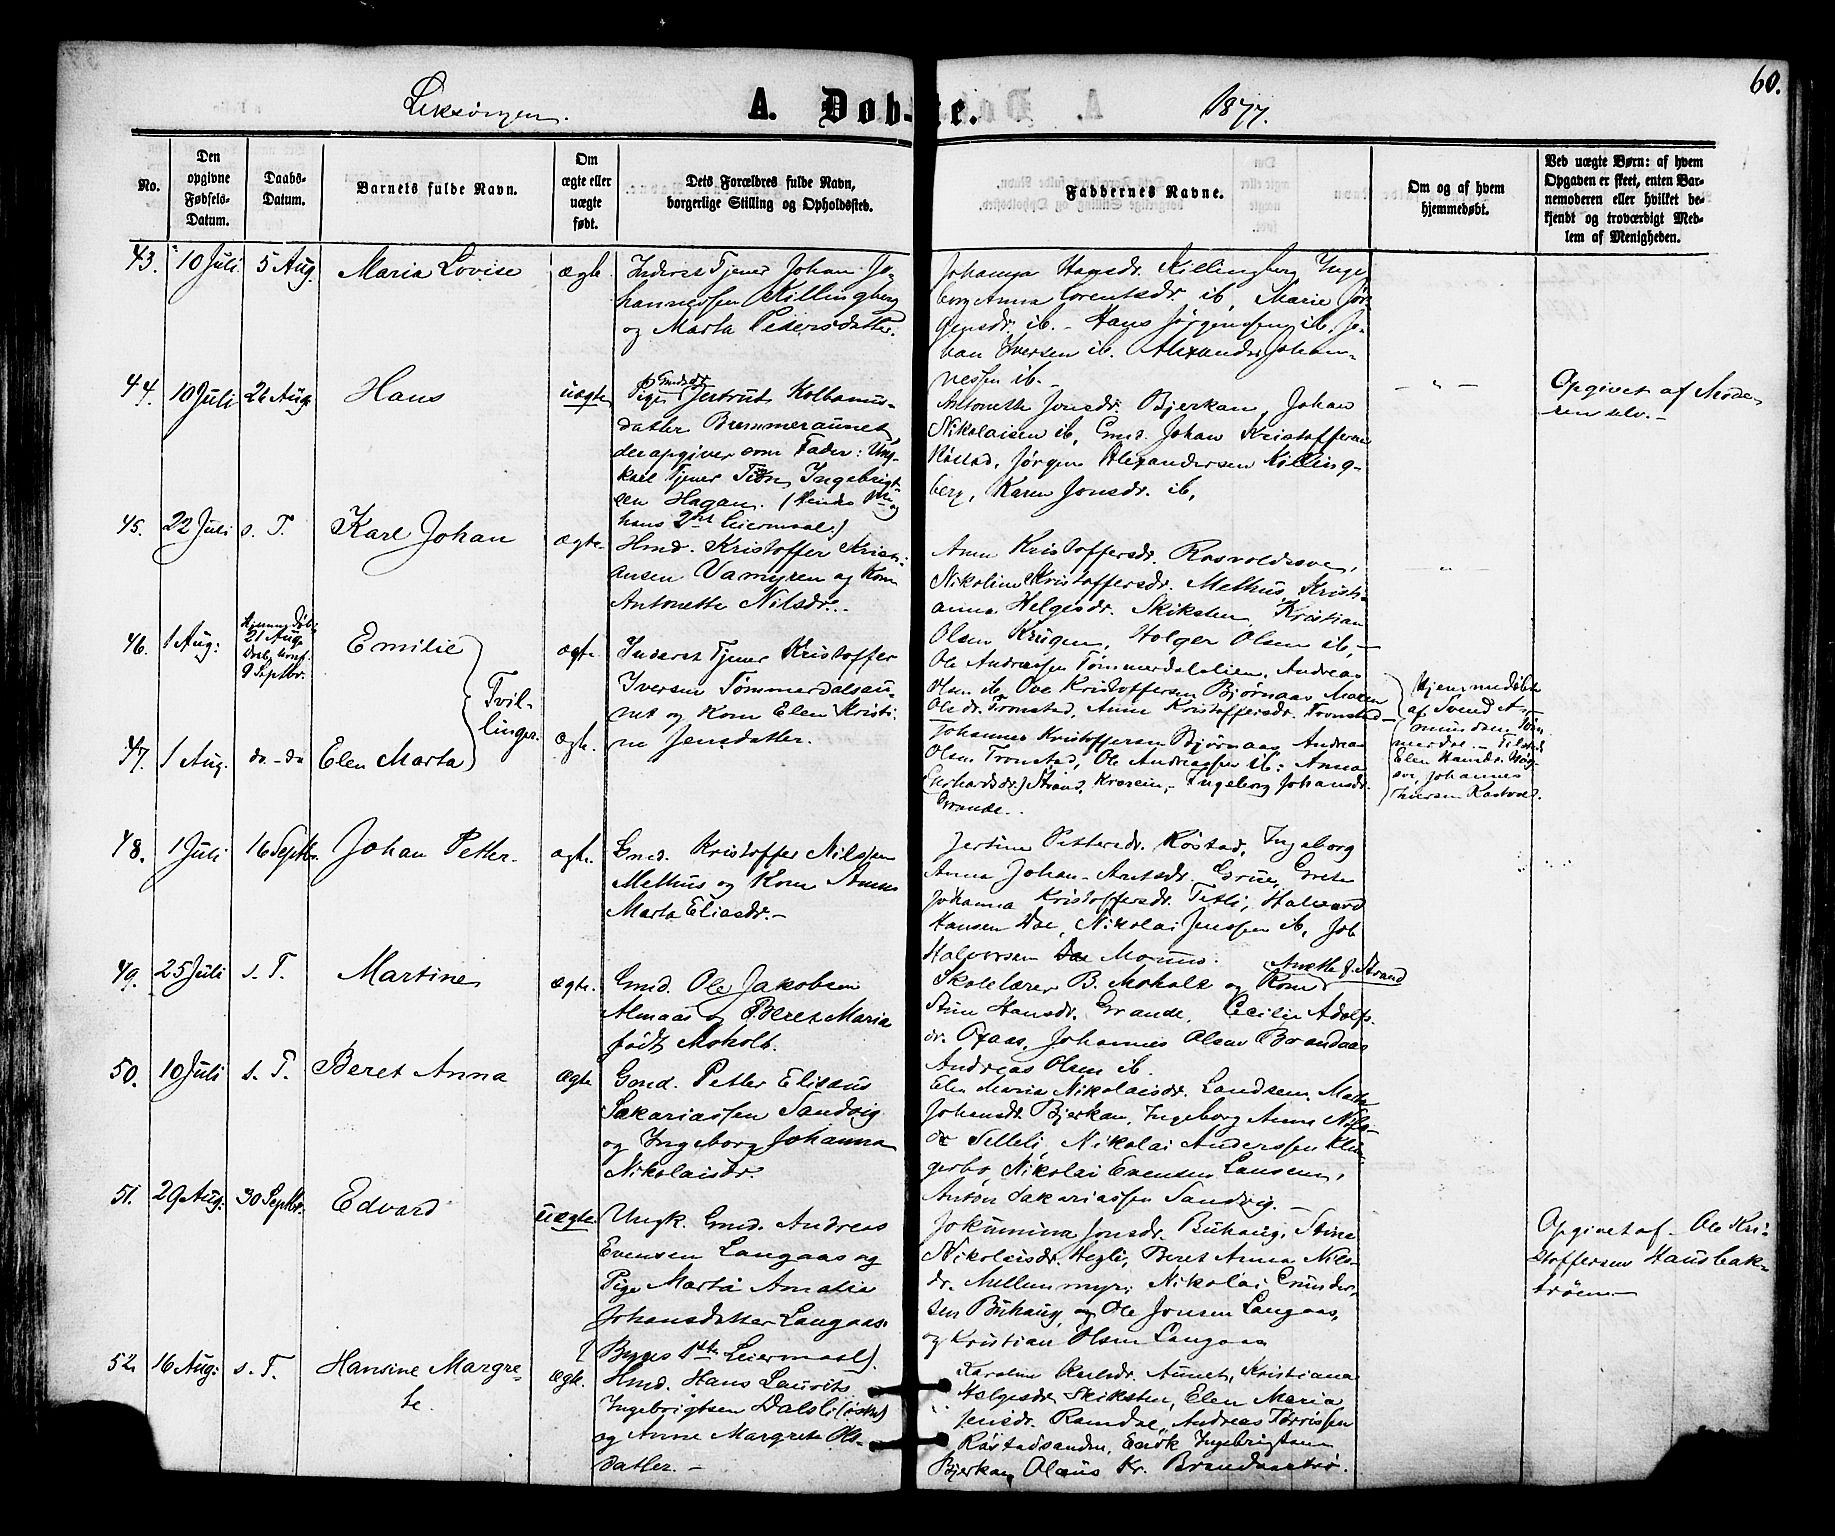 60.
Leksvigen.
A. Døb-te.
1877.
No.
Den opgivne Fødsels-Datum.
Daabs-Datum.
Barnets fulde Navn.
Om ægte eller uægte født.
Dets Forældres fulde Navn, borgerlige Stilling og Opholdssted.
Faddernes Navne.
Om og af hvem hjemmedøbt.
Ved uægte Børn: af hvem Opgaven er skeet, enten Barnemoderen eller hvilket bekjendt og troværdigt Medlem af Menigheden.
43. 10 Juli 5 Aug. Maria Lovise ægte.
Inderst Tjener Johan Jo-
hannessen Killingberg
og Marta Pedersdatter.
Johanna Hansdr. Killingberg, Inge
borg Anna Lorentsdr. ib, Marie Jør
gensdr. ib. - Hans Jørgensen ib, Jo-
han Iversen ib. Alexander Johan-
nessen ib. -
44. 10 Juli 26 Aug. Hans uægte
Pige Gertrud Kolbanus-
datter Brummeraunet,
der opgiver som Fader: Ung-
karl Tjener Ingebrigt
sen Hagan. (Hendes og
hans 2det Leiermaal.)
Antonette Jonsdr. Bjerkan, Johan
Nikolaisen ib, Gmd. Johan Kristoffersen
Røstad, Jørgen Alexandersen Killing-
berg, Karen Jonsdr. ib,
— " —
Opgivet af Mode-
ren selv. -
45. 22 Juli s. T. Karl Johan ægte.
Hmd. Kristoffer Kristi-
ansen Vamyren og Kone
Antonette Nilsdr.
Anne Kristoffersdr. Rosvoldsve,
Nikoline Kristoffersdr. Methus, Kristi-
anna Helgesdr. Skiksten, Kristian
Olsen Krügen, Holger Olsen ib, -
— " —
46. 1 Aug: Hjemmedøbt
21 Aug.
9 Septbr. Emilie ægte.
Tvil-
linger.
Inderst Tjener Kristoffer
Iversen Tømmerdalsau-
net og Kone Elen Kristi
ne Jensdatter.
Ole Andreassen Tømmerdalslien, Andreas
Olsen ib, Ove Kristoffersen Bjørnaas, Maren
Olsdr. Tronstad, Anne Kristoffersdr. Tronstad -
Hjemmedøbte
af Svend
Elen Hansdr.
Johannes
Iversen
47. 1 Aug. do - do Elen Marta ægte.
Johannes Kristoffersen Bjørnaas, Andreas
Olsen Tronstad, Ole Andreassen ib: Anna
Gerhardsdr. Strand, Ingeborg Johansdr.
Grande.
48. 1 Juli 16 Septbr. Johan Petter. ægte.
Gmd. Kristoffer Nilssen
Methus og Kone Anne
Marta Eliasdr. -
Jertine Pettersdr. Røstad, Ingeborg
Anna Johan-Arntsdr. Grue, Grete
Johanna Kristoffersdr. Tetli, Halvard
Hansen Dae, Nikolai Jenssen ib, Job
Halvorsen Moruns.
49. 25 Juli s. T. Martine ægte.
Gmd. Ole Jakobsen
Almaas og Beret Maria
født Moholt.
Anette f. Strand
Skolelærer B. Moholt og Kone
Stine Hansdr. Grande, Cecilie Adolfs-
dr. Oxaas, Johannes Olsen Brandaas
Andreas Olsen ib.
50. 10 Juli s. T. Beret Anna ægte
Gmd. Petter Elisæus
Sakariassen Sandvig
og Ingeborg Johanna
Nikolaisdr.
Elen Maria Nikolaisdr. Landsem, Marta
Johansdr. Bjerkan, Ingeborg Anna Nils-
dr Setteli, Nikolai Anderssen Klin-
gerbo, Nikolai Evensen Lansem,
Anton Sakariassen Sandvig. -
51. 29 Aug: 30 Septbr. Edvard uægte.
Ungk. Gmd. Andreas
Evensen Langaas og
Pige Marta Amalie
Johansdatter Langaas.
(Begges 1ste Leiermaal).
Jokumina Jonsdr. Buhaug, Stine
Nikolaisdr. Hegli, Beret Anna Nils-
dr. Mellemmyr, Nikolai Gunder-
sen Buhaug, og Ole Jonsen Langaas,
og Kristian Olsen Langaas
Opgivet af Ole Kri-
stoffersen Hansbak-
trøen
52. 16 Aug: s. T. Hansine Margre-
te. ægte.
Hmd. Hans Laurits
Ingebrigtsen Dalsli (østre)
og Anne Margrete Ols-
datter. -
Karoline Aunet, Kristiana
Helgesdr. Skiksten, Elen Maria
Jensdr. Ramdal, Andreas Tørrissen
Røstadsanden, Enok Ingebrigtsen
Bjerkan, Olaus Kr. Brandaastrø.